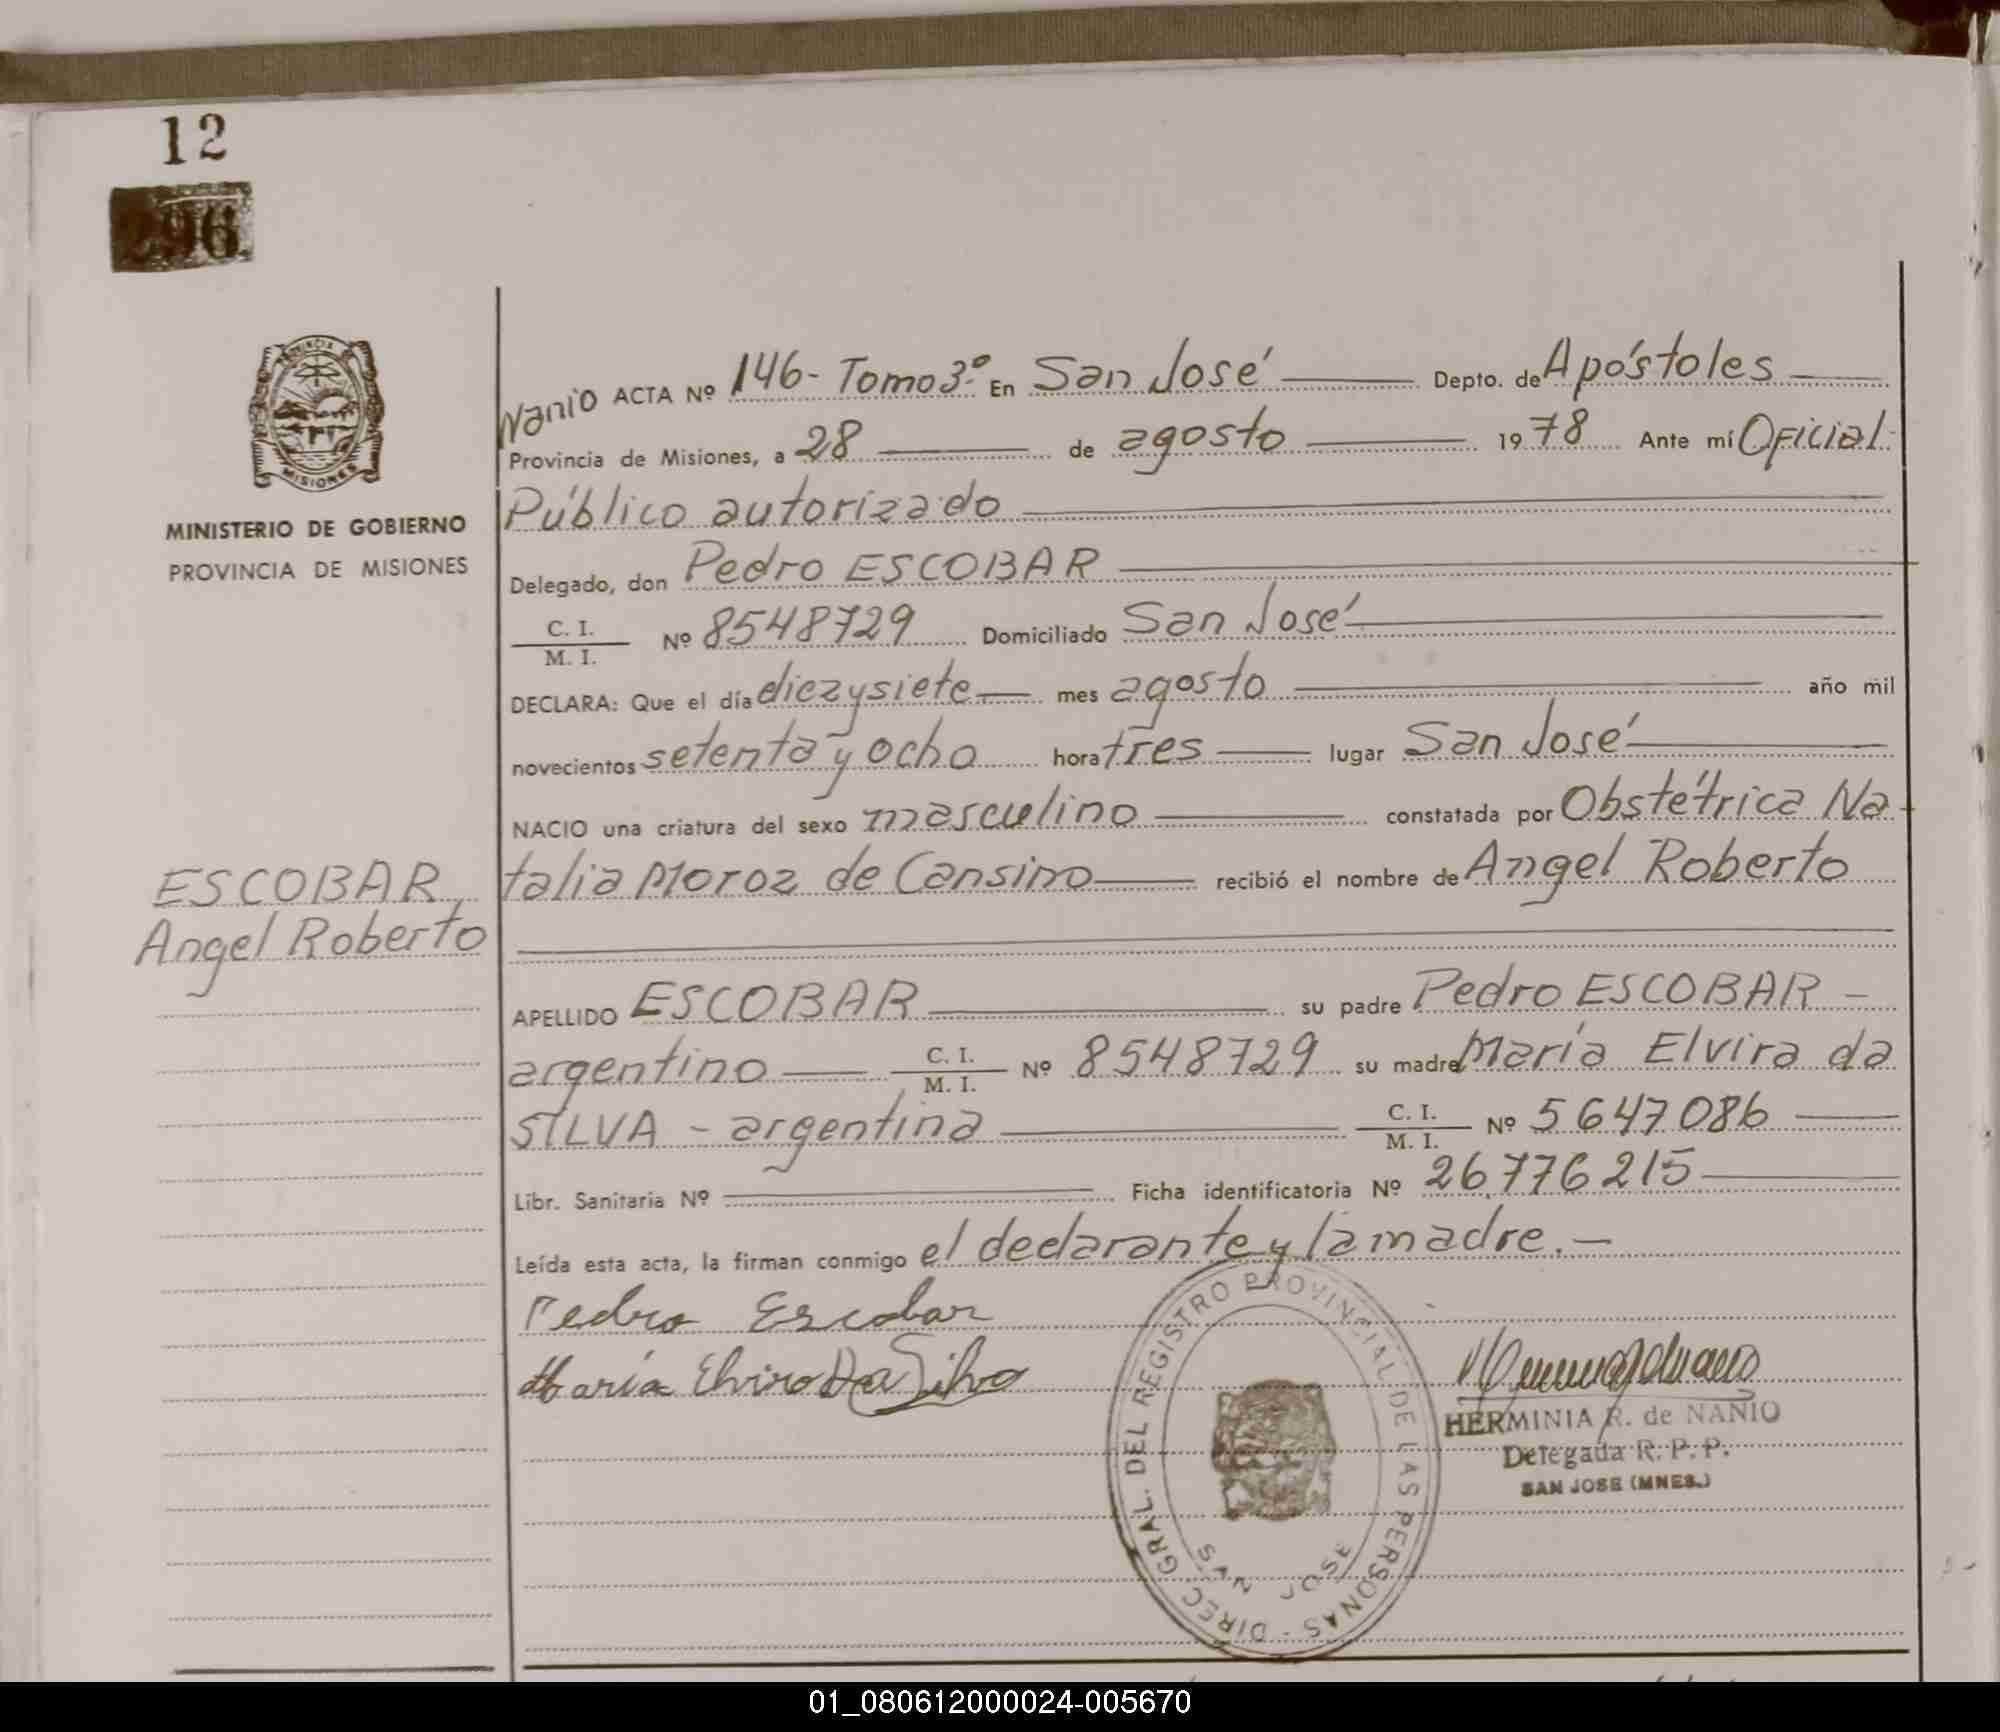 12
296
PROVINCIA
MISIONES
MINISTERIO DE GOBIERNO
PROVINCIA DE MISIONES
ESCOBAR,
Angel Roberto
Nanio ACTA Nº 146- Tomo 3º. En San José Depto. de Apóstoles
Provincia de Misiones, a 28 de agosto 1978 Ante mí Oficial
Público autorizado
Delegado, don Pedro ESCOBAR
C. I. / M. I. Nº 8548729 Domiciliado San José
DECLARA: Que el día diezysiete mes agosto año mil
novecientos setenta y ocho hora tres lugar San José
NACIO una criatura del sexo masculino constatada por Obstétrica Na-
talia Moroz de Cansino recibió el nombre de Angel Roberto
APELLIDO ESCOBAR su padre Pedro ESCOBAR -
argentino C. I. / M. I. Nº 8548729 su madre María Elvira da
SILVA - argentina C. I. / M. I. Nº 5647086
Libr. Sanitaria Nº Ficha identificatoria Nº 26.776215
Leída esta acta, la firman conmigo el declarante y la madre. -
Pedro Escobar
María Elvira Da Silva
DIREC. GRAL. DEL REGISTRO PROVINCIAL DE LAS PERSONAS -
SAN JOSE
HERMINIA R. de NANIO
Delegada R. P. P.
SAN JOSE (MNES.)
01_080612000024-005670